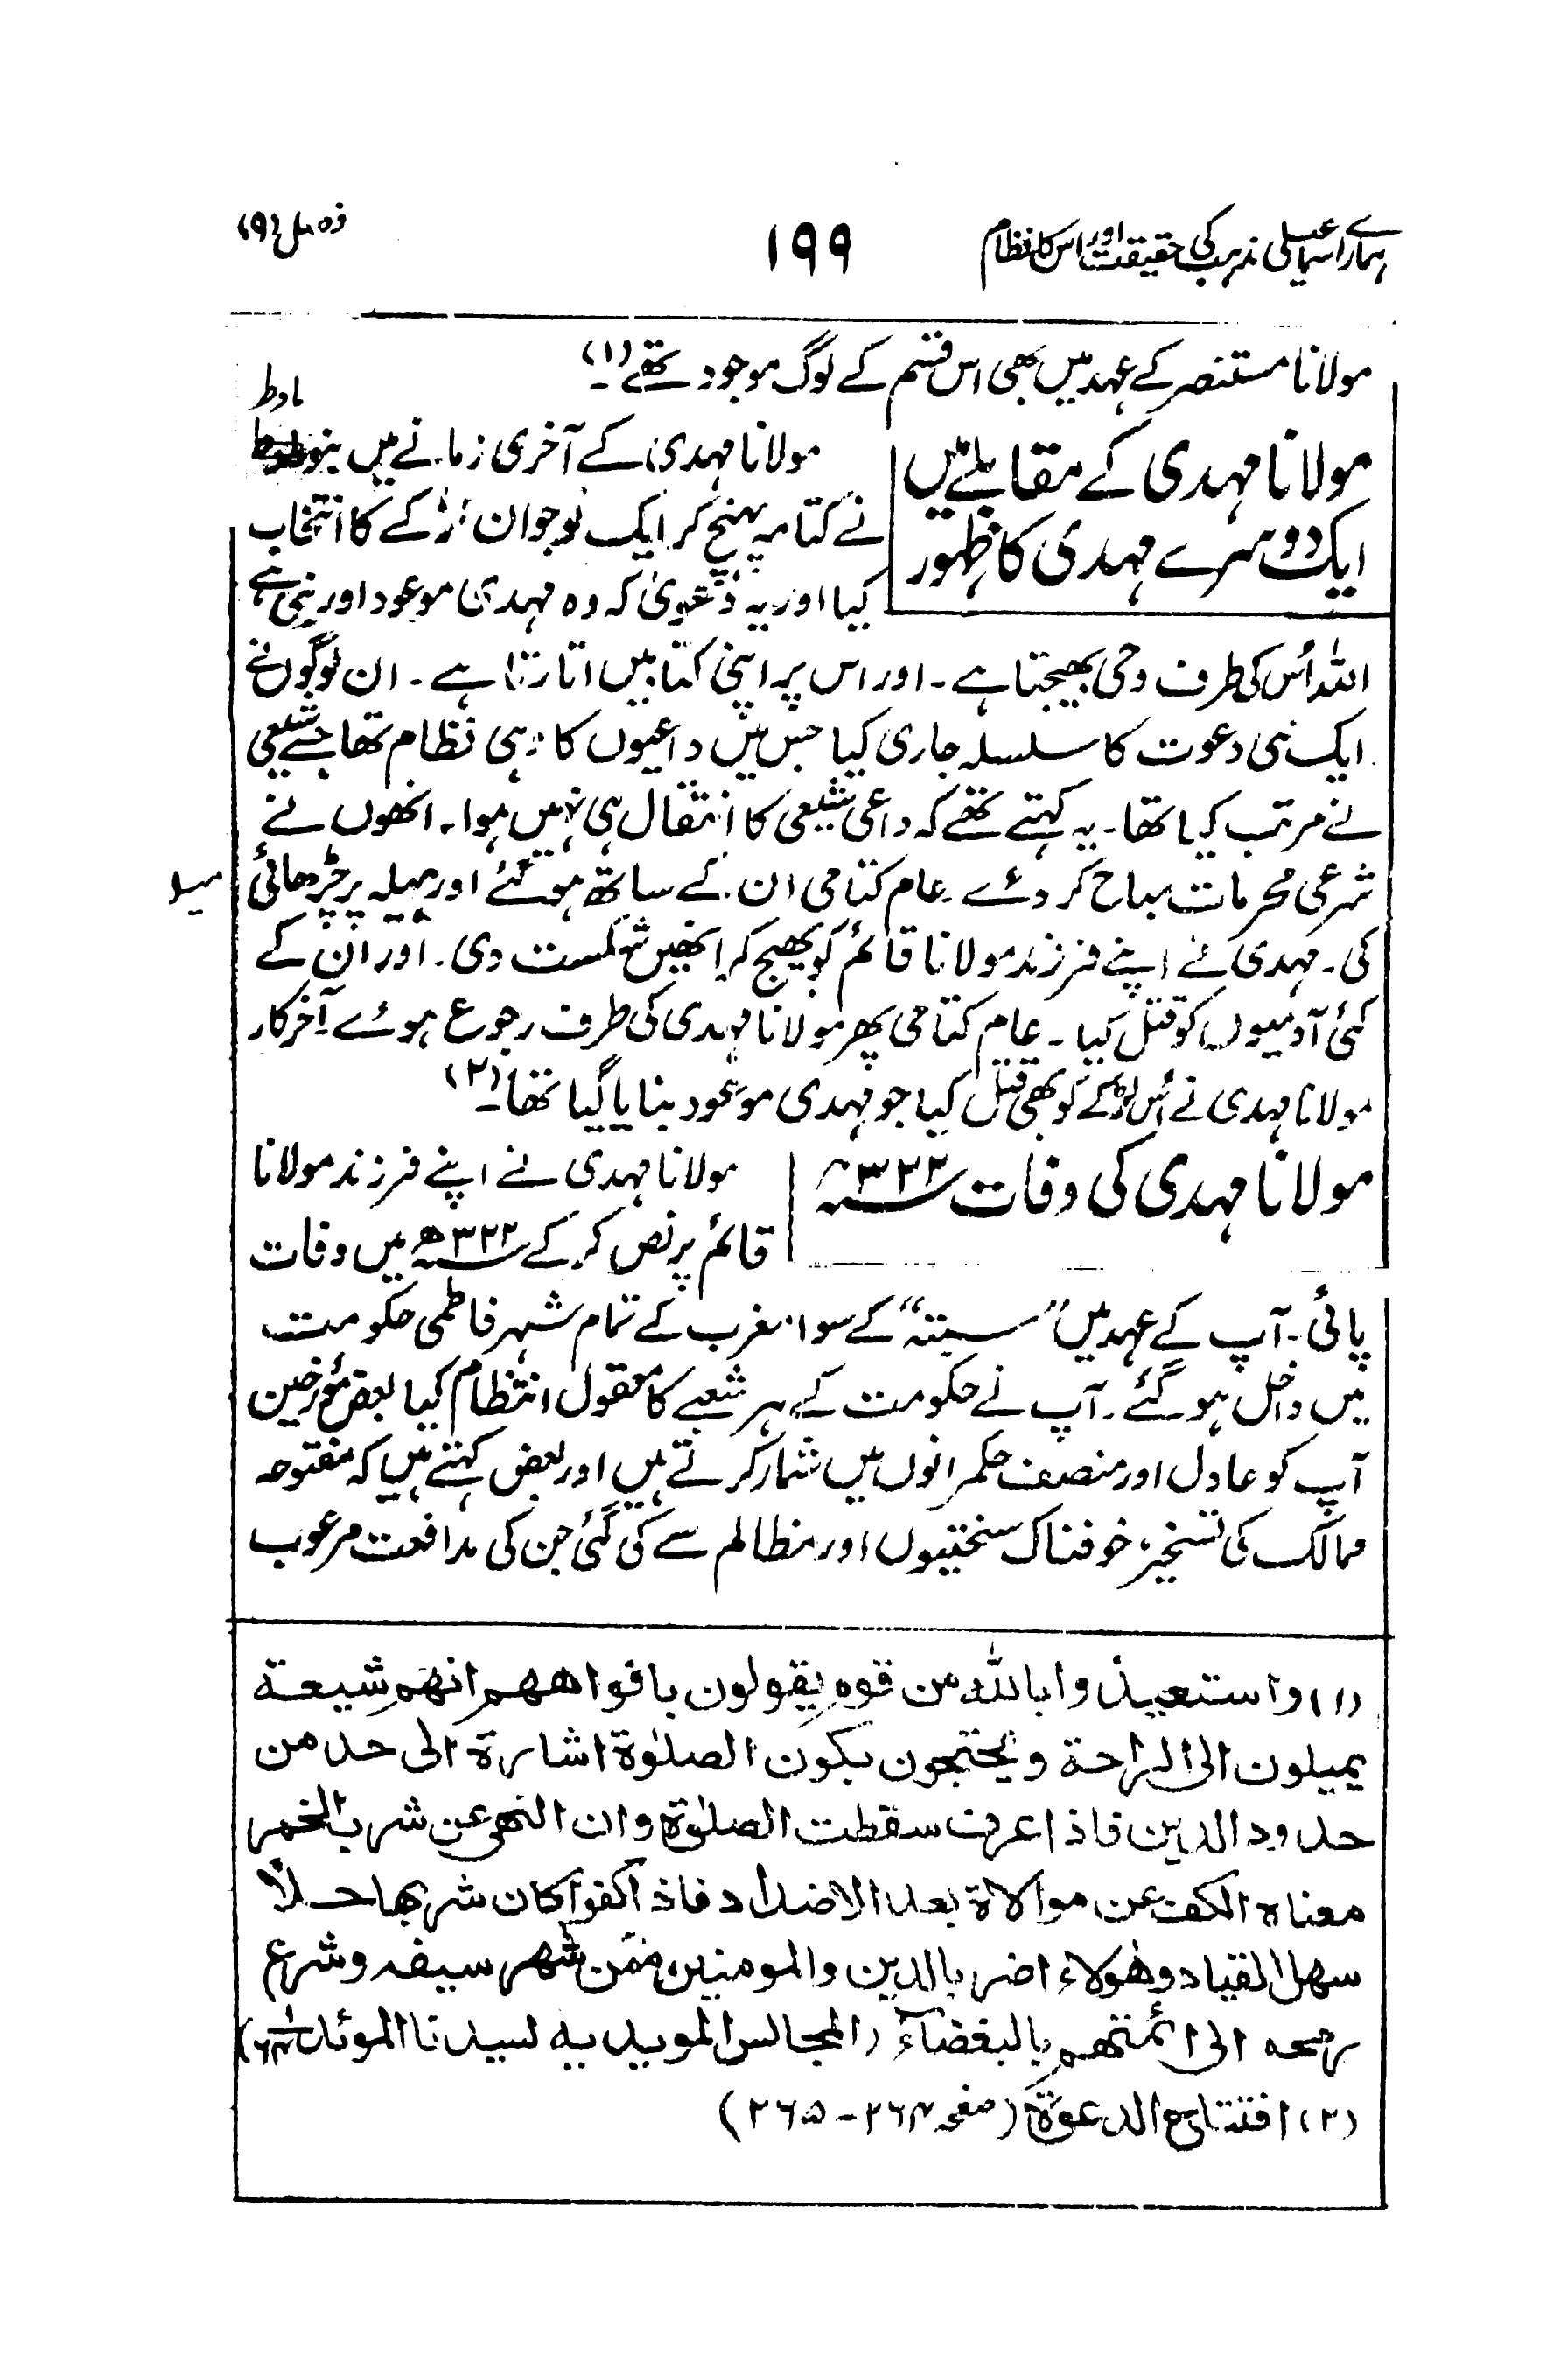 ہمارے اسماعیلی مذہب کی حقیقت اور اس کا نظام
۱۹۹
فصل (۹)
مولانا مستنصر کے عہد میں بھی اس قسم کے لوگ موجود تھے (۱)۔
مولانا مہدی کے مقابلے میں
ایک دوسرے مہدی کا ظہور
ماوط
مولانا مہدی کے آخری زمانے میں
نے کتامہ پہنچ کر ایک نوجوان لڑکے کا انتخاب
کیا اور یہ دعویٰ کہ وہ مہدی موعود اور نبی ہے
اللہ اُس کی طرف وحی بھیجتا ہے۔ اور اس پر اپنی کتابیں اتارتا ہے۔ ان لوگوں نے
ایک نئی دعوت کا سلسلہ جاری کیا جس میں داعیوں کا وہی نظام تھا جسے شیعی
نے مرتب کیا تھا۔ یہ کہتے تھے کہ داعی شیعی کا انتقال ہی نہیں ہوا۔ انھوں نے
شرعی محرمات مباح کر دئے۔ عام کتامی ان کے ساتھ ہو گئے اور میلہ پر چڑھائی
میلہ
کی۔ مہدی نے اپنے فرزند مولانا قائم کو بھیج کر انھیں شکست دی۔ اور ان کے
کئی آدمیوں کو قتل کیا۔ عام کتامی پھر مولانا مہدی کی طرف رجوع ہوئے آخر کار
مولانا مہدی نے اُس لڑکے کو بھی قتل کیا جو مہدی موعود بنایا گیا تھا۔ (۲)
مولانا مہدی کی وفات ۳۲۲ھ
مولانا مہدی نے اپنے فرزند مولانا
قائم پر نص کر کے ۳۲۲ھ میں وفات
پائی۔ آپ کے عہد میں ”سبتہ“ کے سوا مغرب کے تمام شہر فاطمی حکومت
میں داخل ہو گئے۔ آپ نے حکومت کے ہر شعبے کا معقول انتظام کیا بعض مؤرخین
آپ کو عادل اور منصف حکمرانوں میں شمار کرتے ہیں اور بعض کہتے ہیں کہ مفتوحہ
ممالک کی تسخیر خوفناک سختیوں اور مظالم سے کی گئی جن کی مدافعت مرعوب
(۱) واستعیذوا باللہ من قوم یقولون بافواھھم انھم شیعة
یمیلون الی الراحة ویحتجون بکون الصلوٰة اشارة الی حد من
حدود الدین فاذا عرف سقطت الصلوٰة وان النھی عن شرب الخمر
معناہ الکف عن موالاة بعد الاضداد فاذا کفوا کان شربھا حلاً
سھل القیاد وھٰولاء اضر بالدین والمومنین ممّن شھر سیفہ وشرع
رمحہ الی ائمتھم بالبغضاء (المجالس المویدیہ لسیدنا الموئد
(۲) افتتاح الدعوة (صفحہ ۲۶۴ – ۲۶۵)